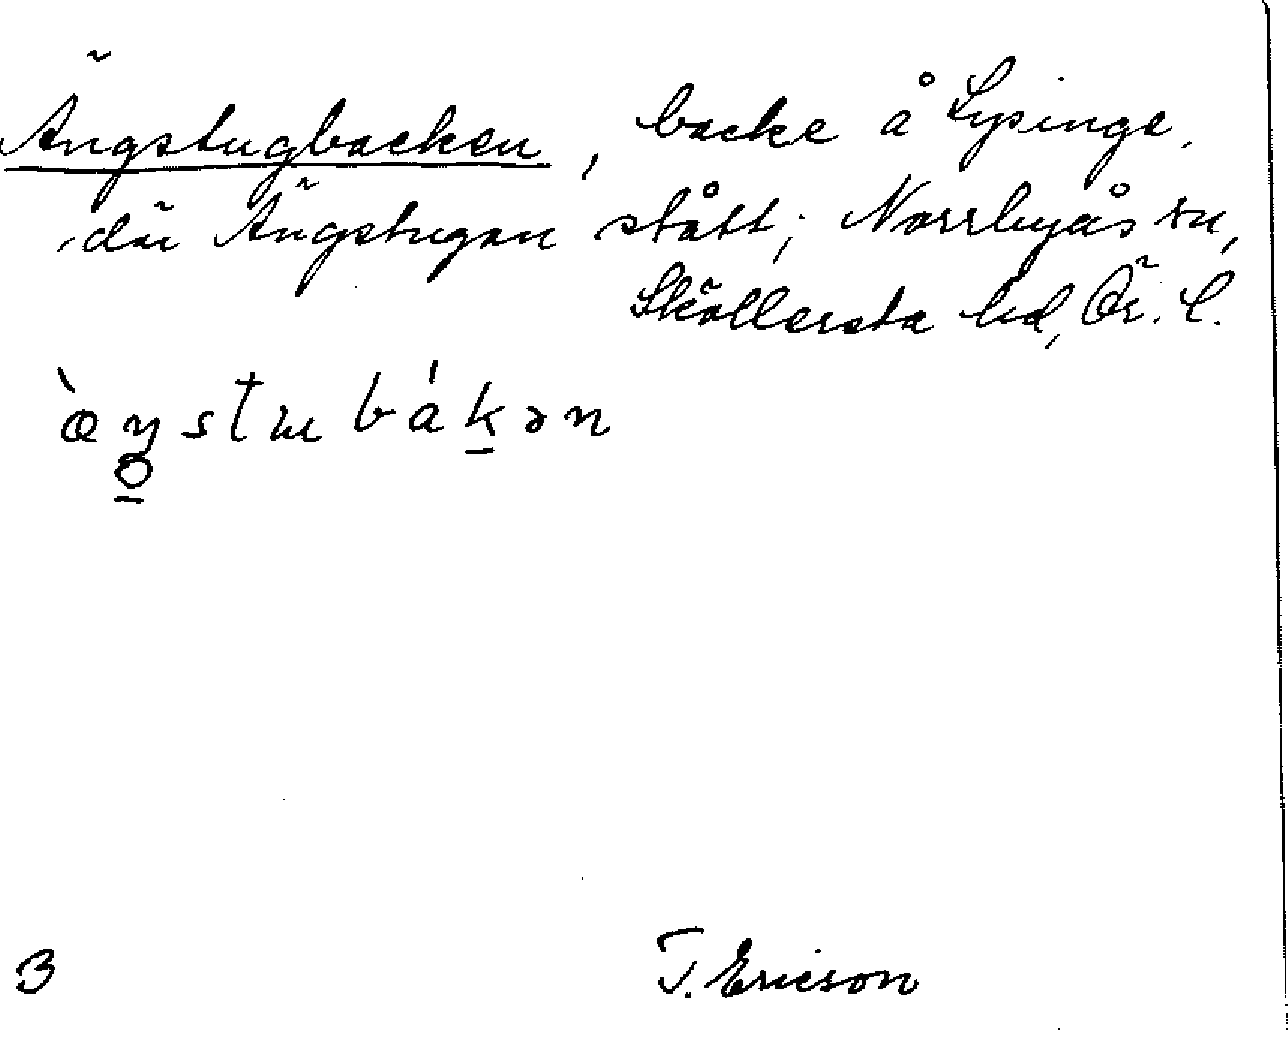 Ängstugbacken, backe å Lysinge,
där Ängstugan stått; Norrbyås sn,
Sköllersta hd, Ör. l.
æ̀ŋstɯbákən
3 T. Ericson